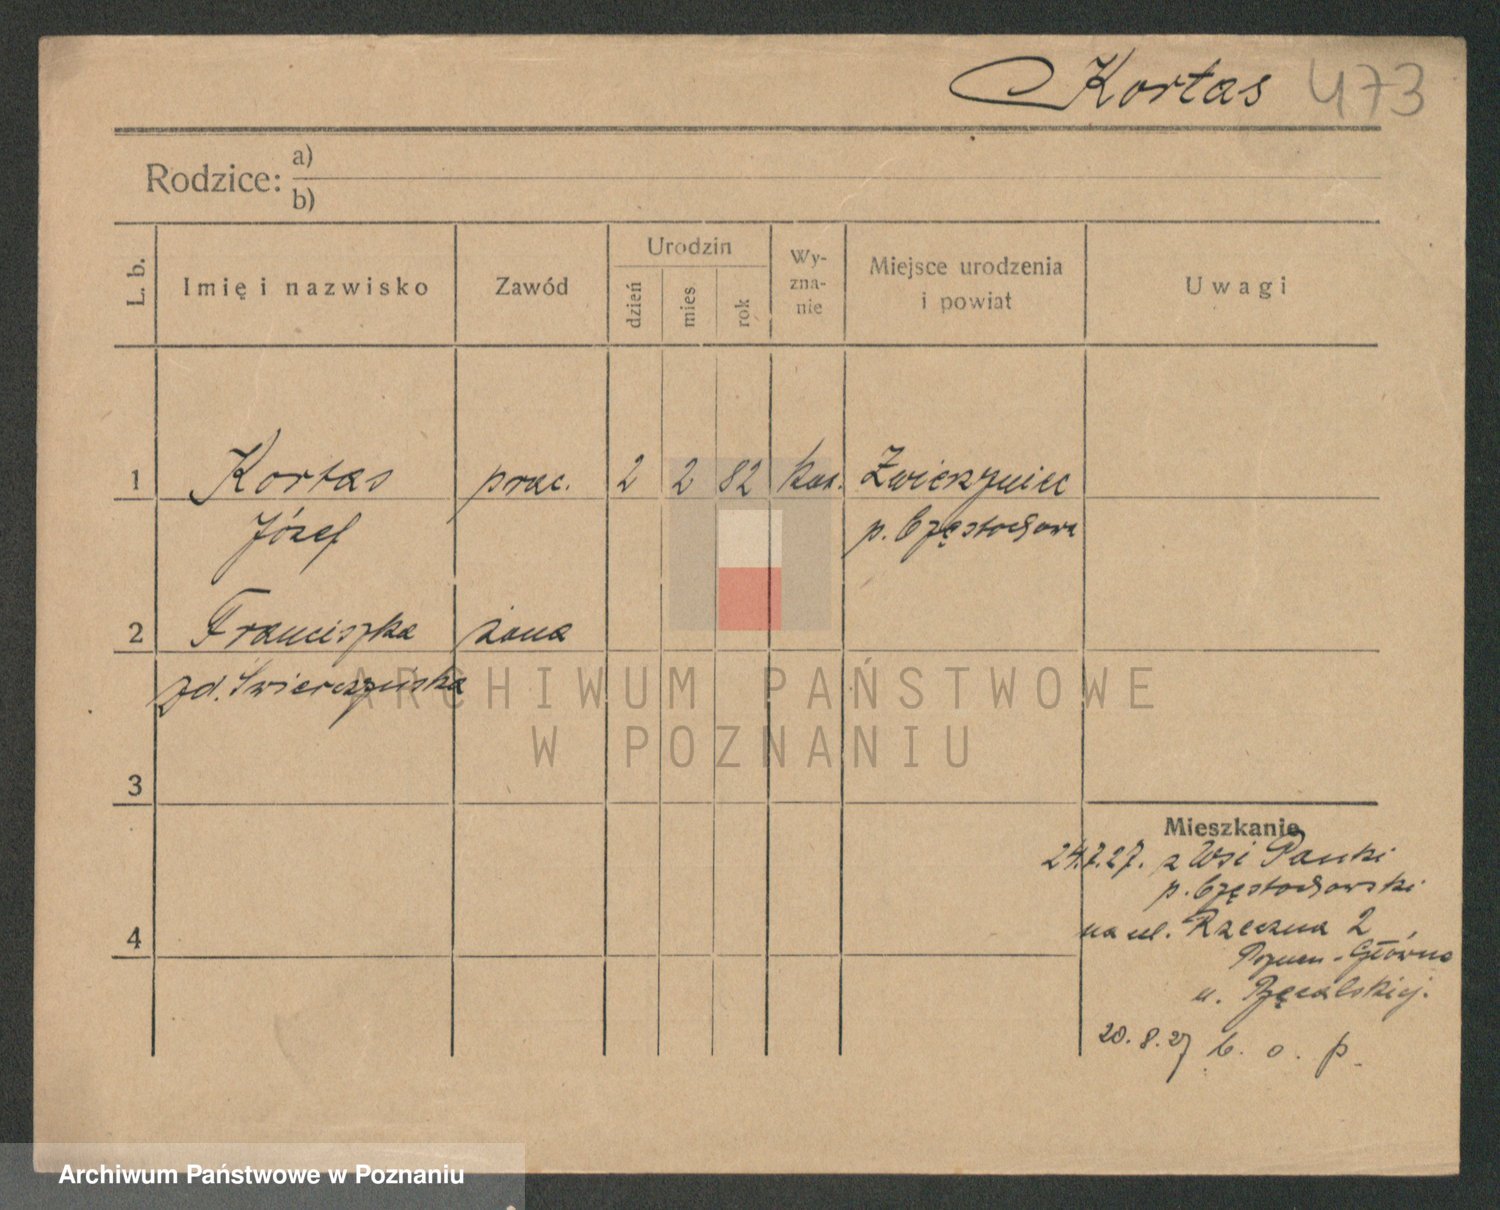 Kortas 473
Rodzice: a)
b)
L. b. Imię i nazwisko Zawód Urodzin dzień mies rok Wy-zna-nie Miejsce urodzenia i powiat Uwagi
1 Kortas prac. 2 2 82 kat. Zwierzyniec
Józef p. Częstochowa
2 Franciszka żona
zd. Świerczyńska
ARCHIWUM PAŃSTWOWE
W POZNANIU
3
Mieszkanie
24.7.27. z Wsi Panki
p. Częstochowski
4 na ul. Rzeczna 2
Poznan - Główna
u.
20.8.27 b. o. p.
Archiwum Państwowe w Poznaniu